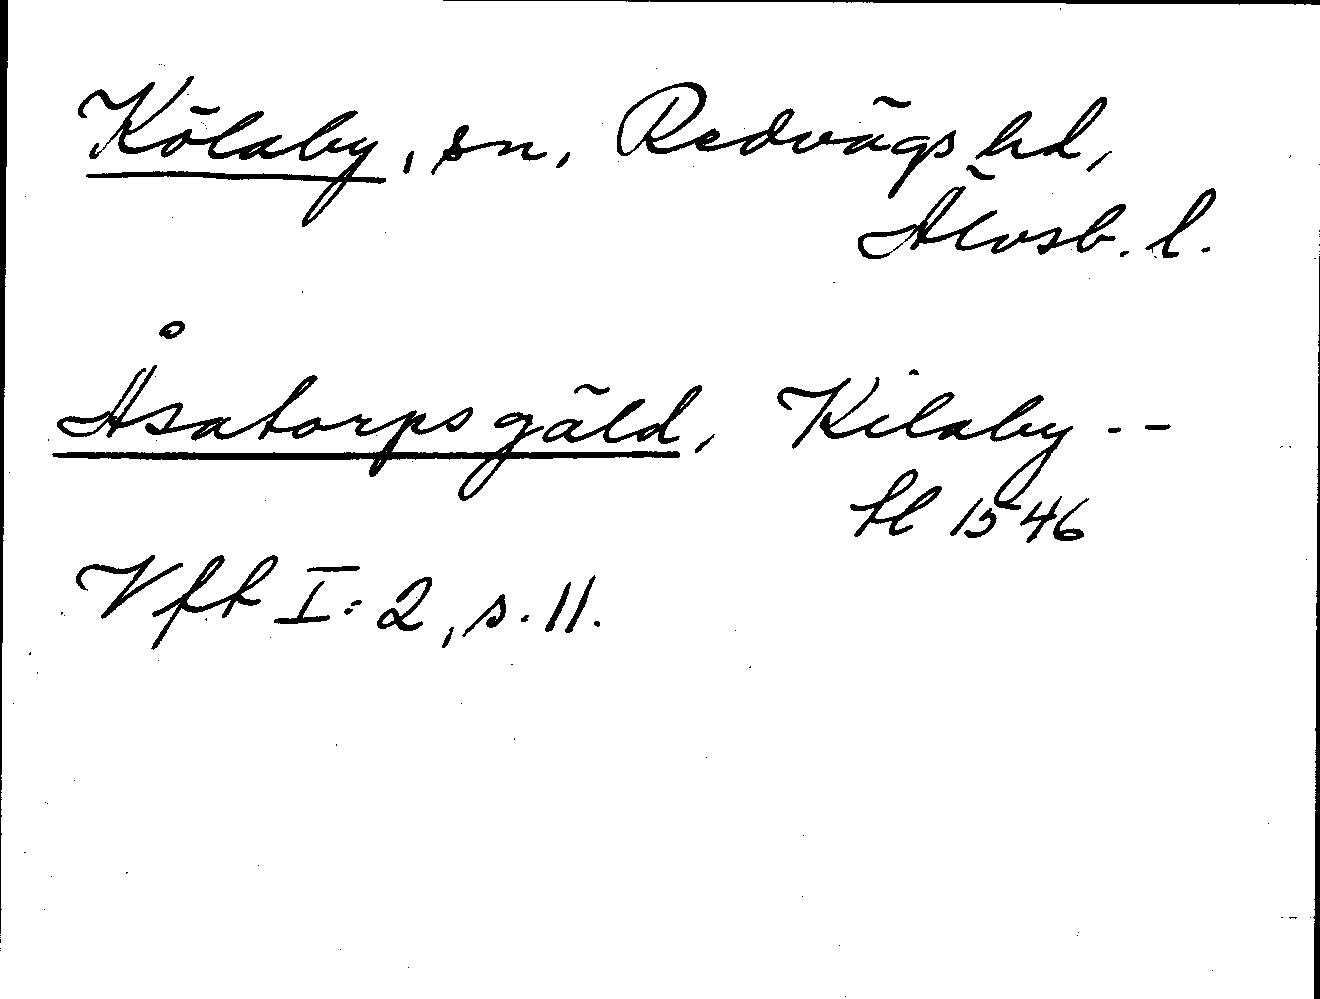 Kölaby, sn, Redvägs hd,
Älvsb. l.
Åsatorps gäld, Kilaby --
tl 1546
Vfh I:2, s. 11.